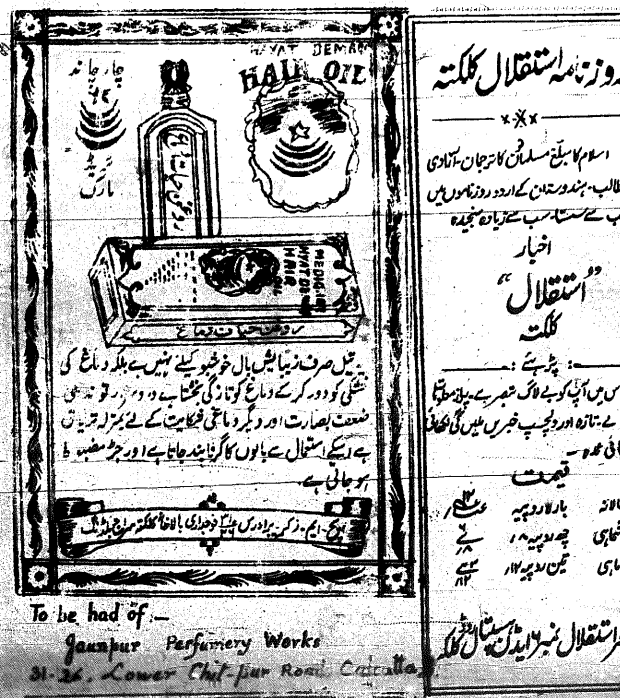 HAYAT DEMAGH
HAIR OIL
چار چاند
ٹریڈ
مارک
روغن حیات دماغ
MEDICINE
HYAT DE
HAIR
روغن حیات دماغ
یہ تیل صرف زیبایش بال خوشبو کیلئے نہیں ہے بلکہ دماغ کی
خشکی کو دور کر کے دماغ کو تازگی بخشتا ہے
ضعف بصارت اور دیگر دماغی شکایت کے لئے بمنزلہ تریاق
ہے اسکے استعمال سے بالوں کا گرنا بند ہو جاتا ہے اور جڑ مضبوط
ہو جاتی ہے۔
ایچ۔ ایم۔ زکریا برادرس فوجداری بالاخانہ کلکتہ
To be had of:—
Jaunpur Perfumery Works
31-26, Lower Chit-pur Road Calcutta
روزنامہ استقلال کلکتہ
اسلام کا مبلغ مسلمانوں کا ترجمان۔ آزادی
طالب۔ ہندوستان کے اردو روزناموں میں
سب سے سستا۔ سب سے زیادہ سنجیدہ
اخبار
"استقلال"
کلکتہ
پڑہئے
اس میں آپ کو بے لاگ تبصرے۔
تازہ اور دلچسپ خبریں ملیں گی لکھائی
قیمت
سالانہ بارہ روپیہ
ششماہی چھ روپیہ ۸؍
ماہی تین روپیہ ۱۲؍
استقلال نمبر ۶ ایڈن ہسپتال روڈ کلکتہ